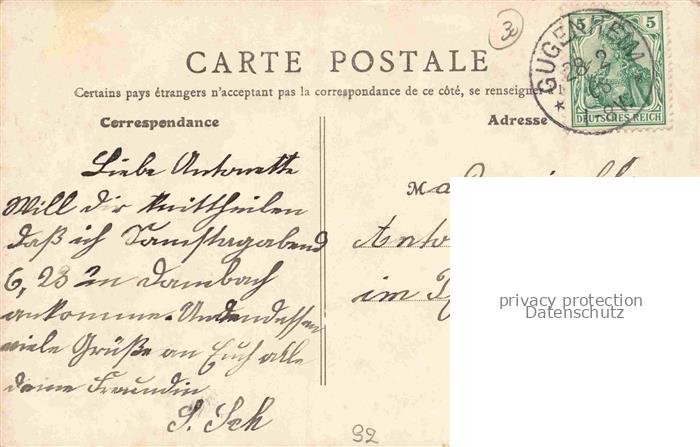 30
GUGENHEIM
28 2
5 5
DEUTSCHES REICH
CARTE POSTALE
Certains pays étrangers n'acceptant pas la correspondance de ce côté, se renseigner
Correspondance
Adresse
Liebe Antonette
Will dir mittheilen
daß ich Samstagabend
6,23 in Dambach
ankomme. Undendessen
viele Grüße an Euch alle
deine Freundin
S. Sch
Anto
im
privacy protection
Datenschutz
92